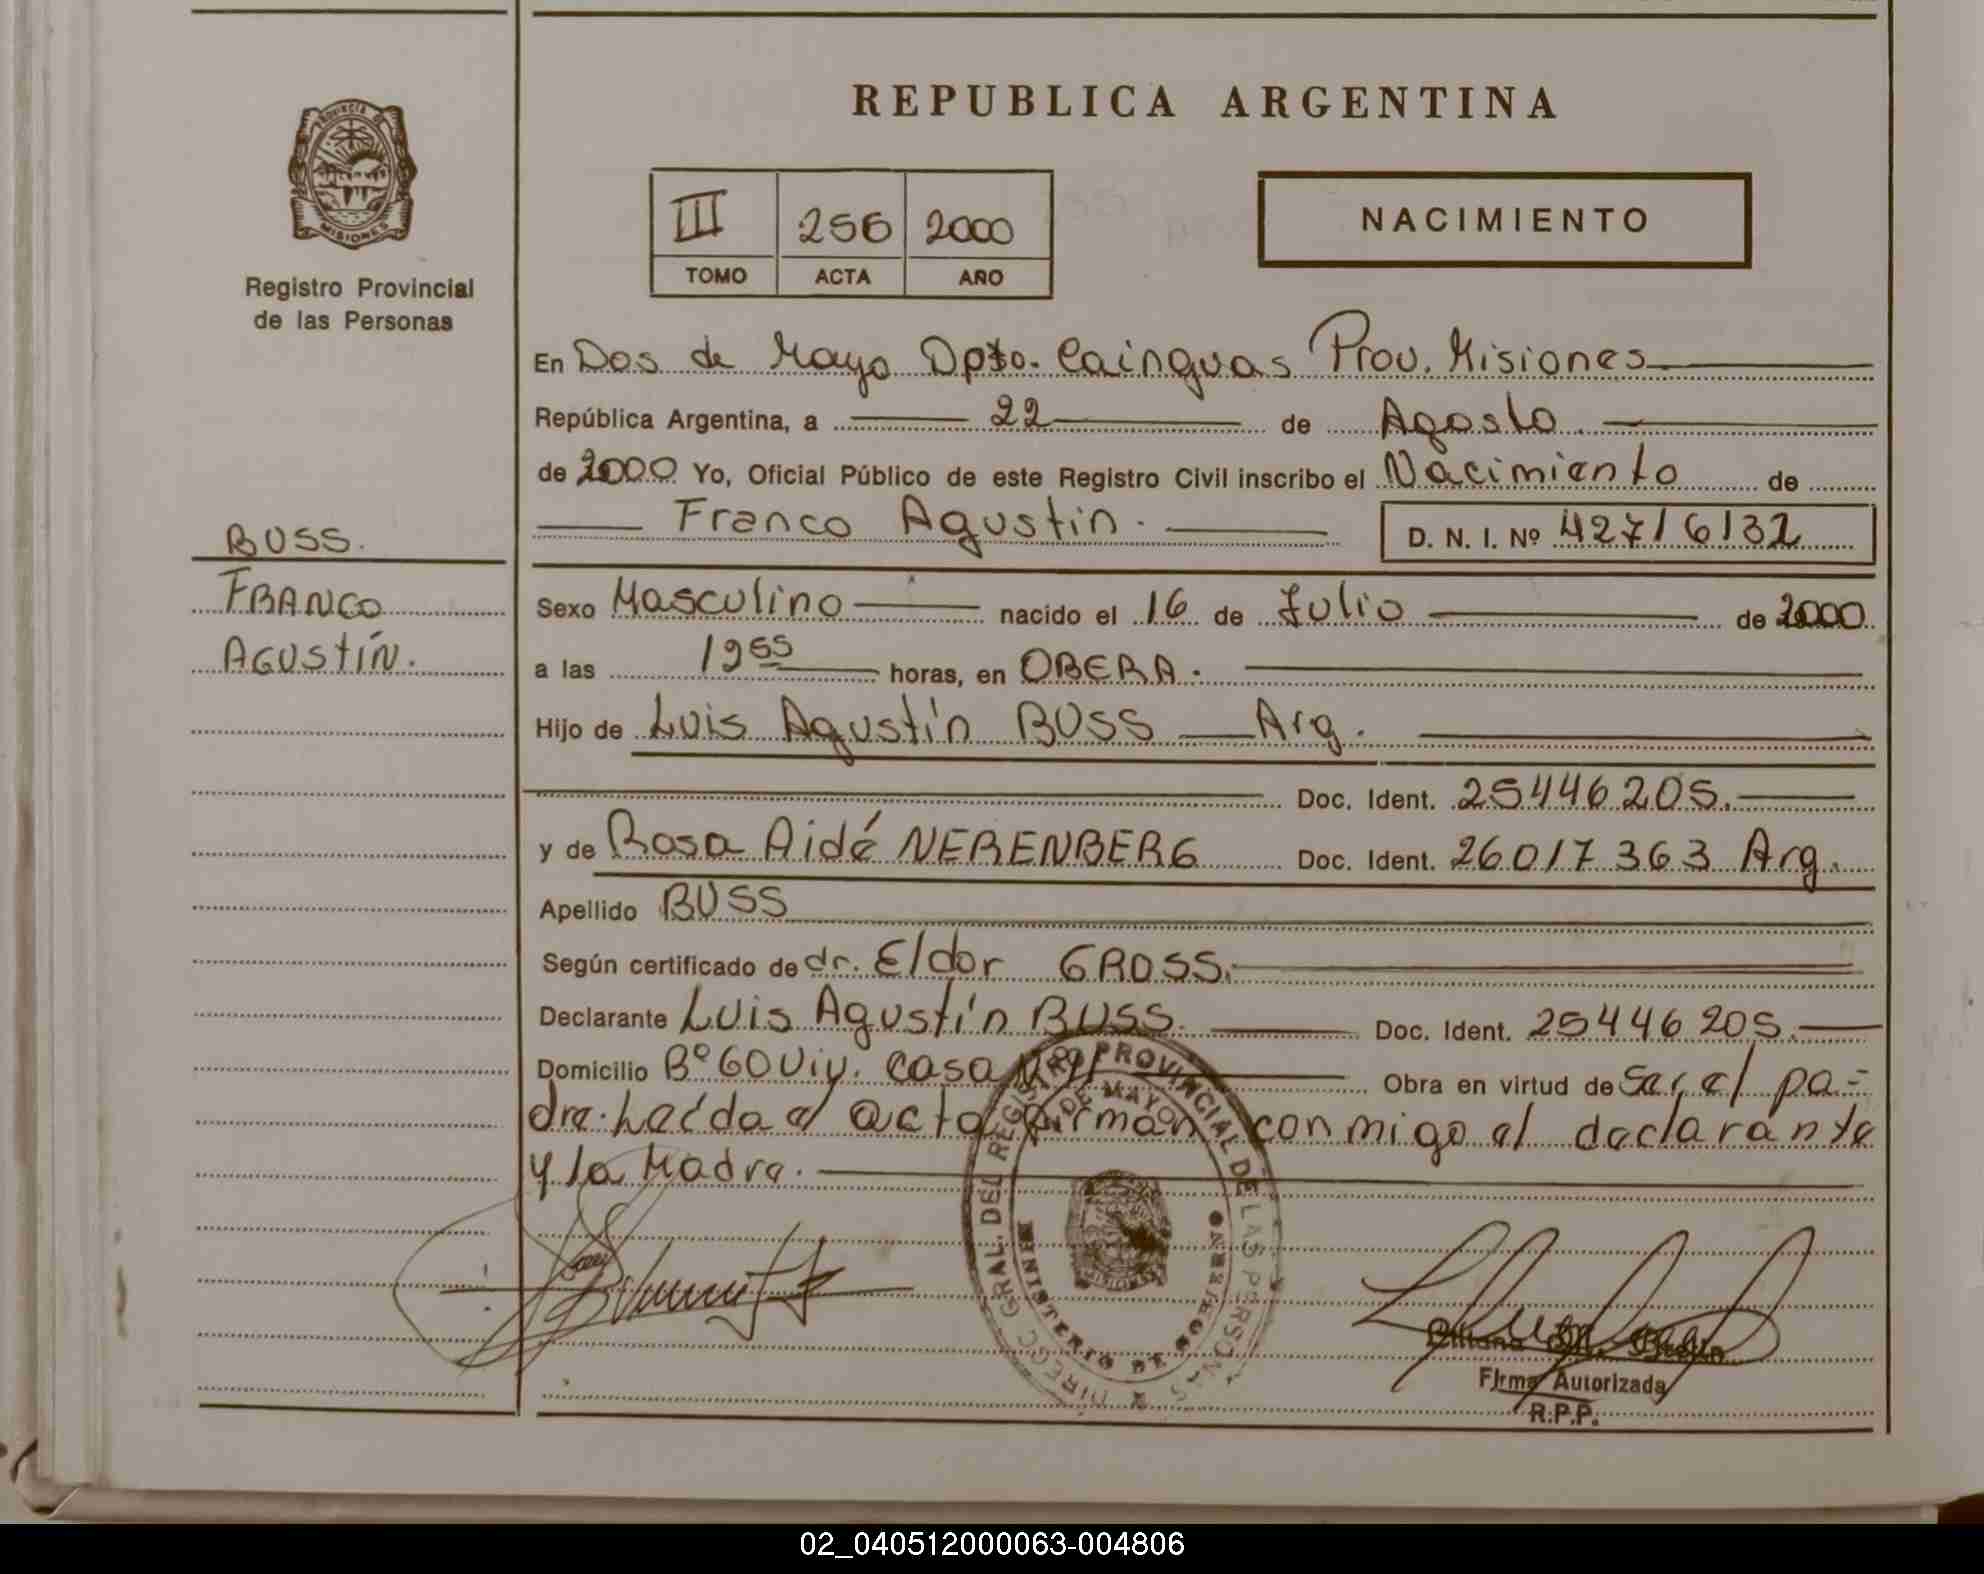 REPUBLICA ARGENTINA
PROVINCIA DE
MISIONES
Registro Provincial
de las Personas
III 256 2000
TOMO ACTA AÑO
NACIMIENTO
En Dos de Mayo Dpto. Cainguas Prov. Misiones
República Argentina, a 22 de Agosto
de 2000 Yo, Oficial Público de este Registro Civil inscribo el Nacimiento de
Franco Agustin. D. N. I. Nº 42716132
BUSS.
FRANCO
AGUSTÍN.
Sexo Masculino nacido el 16 de Julio de 2000
a las 19 55 horas, en OBERA.
Hijo de Luis Agustín BUSS Arg.
Doc. Ident. 25446205.
y de Rosa Aidé NERENBERG Doc. Ident. 26017363 Arg.
Apellido BUSS
Según certificado de dr. Eldor GROSS.
Declarante Luis Agustín BUSS. Doc. Ident. 25446205.
Domicilio Bº 60 Viv. casa Obra en virtud de ser el pa=
dre. Leída el acta firman conmigo el declarante
y la Madre.
DIRECC. GRAL. DEL REGISTRO PROVINCIAL DE LAS PERSONAS
DE MAYO
MINISTERIO DE GOBIERNO
MISIONES
Firma Autorizada
R.P.P.
02_040512000063-004806